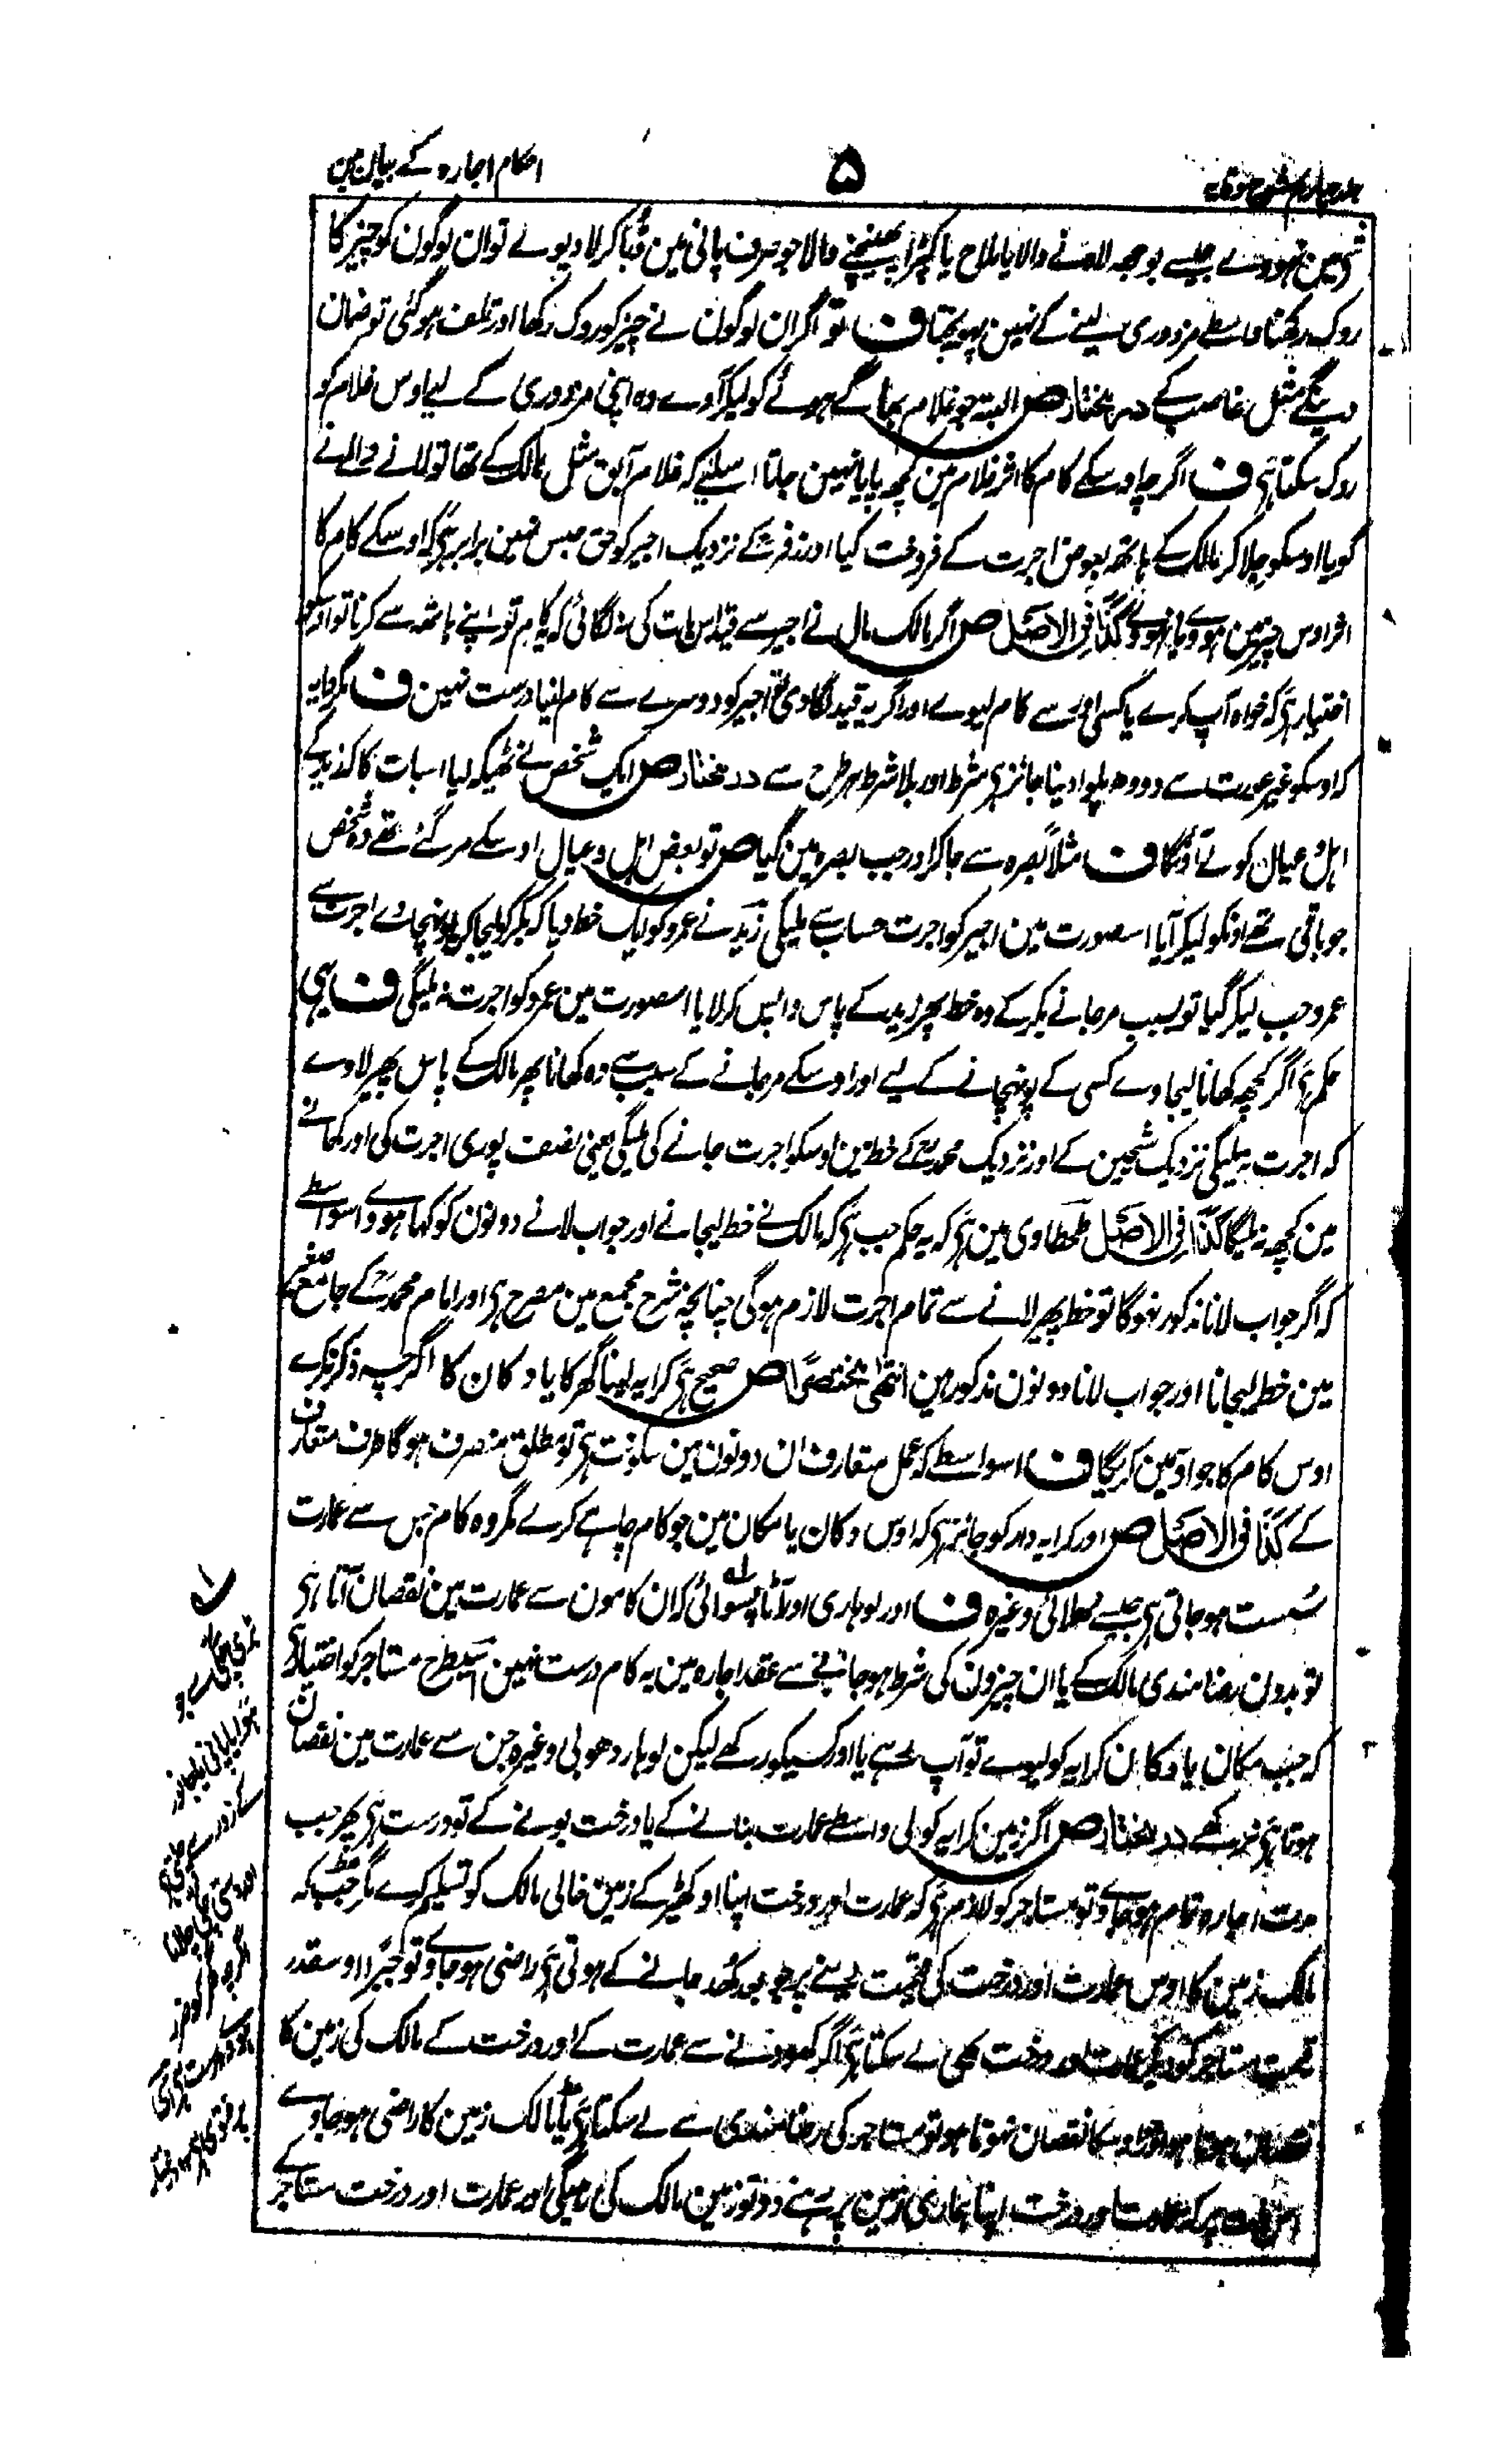 احکام اجارہ کے بیان مین
۵
جلد چہارم شرح وقایہ
شی مین نہووے جیسے بوجھ لادنے والا یا ملاح یا کپڑا بھینچنے والا جو صرف پانی مین ڈبا کر لادیوے توان لوگون کو چیز کا
روک رکھنا واسطے مزدوری لینے کے نہین پہونچتا ف تو اگر ان لوگون نے چیز کو روک رکھا اور تلف ہوگئی تو ضمان
دینگے مثل غاصب کے درمختار ص البتہ جو غلام بھاگے ہوئے کو لیکر آوے وہ اپنی مزدوری کے لیے اوس غلام کو
روک سکتا ہی ف اگرچہ اوسکے کام کا اثر غلام مین کچھ پایا نہین جاتا اسلیے کہ غلام آبق مثل ہالک کے تھا تو لانے والے نے
گویا اوسکو جلا کر مالک کے ہاتھ بعوض اجرت کے فروخت کیا اور زفر کے نزدیک اجیر کو حق حبس نہین برابر ہی کہ اوسکے کام کا
اثر اوس چیز مین ہووے یا نہووے کذا فی الاصل ص اگر مالک مال نے اجیر سے قید اس بات کی نہ لگائی کہ یہ کام تو اپنے ہاتھ سے کرنا تو اوسکو
اختیار ہی کہ خواہ آپ کرے یا کسی اور سے کام لیوے اور اگر یہ قید لگا دی تو اجیر کو دوسرے سے کام لینا درست نہین ف مگر دایہ
کہ اوسکو غیر عورت سے دودھ پلوا دینا جائز ہی شرط اور بلا شرط ہر طرح سے درمختار ص ایک شخص نے ٹھیکہ لیا اسبات کا کہ زید کے
اہل و عیال کو لے آؤنگا ف مثلاً بصرہ سے جا کر اور جب بصرہ مین گیا ص تو بعض اہل و عیال اوسکے مر گئے تھے وہ شخص
جو باقی تھے اونکو لیکر آیا اسصورت مین اجیر کو اجرت حساب سے ملیگی زید نے عمرو کو ایک خط دیا کہ بکر کو لیجا کر پہونچادے اجرت سے
عمرو جب لیکر گیا تو بسبب مرجانے بکر کے وہ خط پھر زید کے پاس واپس کر لایا اسصورت مین عمرو کو اجرت نہ ملیگی ف یہی
حکم ہی اگر کچھ کھانا لیجاوے کسی کے پہونچانے کے لیے اور اوسکے مرجانے کے سبب سے وہ کھانا پھر مالک کے پاس پھیر لاوے
کہ اجرت نہ ملیگی نزدیک شیخین کے اور نزدیک محمد کے خط مین اوسکو اجرت جانے کی ملیگی یعنی نصف پوری اجرت کی اور کھانے
مین کچھ نہ ملیگا کذا فی الاصل طحطاوی مین ہی کہ یہ حکم جب ہی کہ مالک نے خط لیجانے اور جواب لانے دونون کو کہا ہووے اسواسطے
کہ اگر جواب لانا مذکور نہوگا تو خط پھیر لانے سے تمام اجرت لازم ہوگی چنانچہ شرح مجمع مین مصرح ہی اور امام محمد کے جامع صغیر
مین خط لیجانا اور جواب لانا دونون مذکور ہین انتہی مختصراً ص صحیح ہی کرایہ لینا گھر کا یا دکان کا اگرچہ ذکر نکرے
اوس کام کا جو اوسمین کریگا ف اسواسطے کہ عمل متعارف ان دونون مین سکونت ہی تو مطلق منصرف ہوگا طرف متعارف
کے کذا فی الاصل ص اور کرایہ دار کو جائز ہی کہ اوس دکان یا مکان مین جو کام چاہے کرے مگر وہ کام جس سے عمارت
سست ہوجاتی ہی جیسے دھلائی وغیرہ ف اور لوہاری اور آٹا پسوائی کہ ان کامون سے عمارت مین نقصان آتا ہی
تو بدون رضامندی مالک کے یا ان چیزون کی شرط ہوجانے کے عقد اجارہ مین یہ کام درست نہین اسیطرح مستاجر کو اختیار ہی
کہ جب مکان یا دکان کرایہ کو لیوے تو آپ رہے یا اور کسیکو رکھے لیکن لوہار دھوبی وغیرہ جن سے عمارت مین نقصان
ہوتا ہی نہ رکھے درمختار ص اگر زمین کرایہ کو لی واسطے عمارت بنانے کے یا درخت بونے کے تو درست ہی پھر جب
مدت اجارہ تمام ہوجاوے تو مستاجر کو لازم ہی کہ عمارت اور درخت اپنا اوکھیڑ کے زمین خالی مالک کو تسلیم کرے مگر جب کہ
مالک زمین کا اوس عمارت اور درخت کی قیمت دینے پر جو بعد کھد جانے کے ہوتی ہی راضی ہوجاوے تو جبراً اوسقدر
قیمت مستاجر کو دیکر عمارت اور درخت بھی لے سکتا ہی اگر کھودنے سے عمارت کے اور درخت کے مالک کی زمین کا
نقصان ہوتا ہو اور جو اوسکا نقصان نہوتا ہو تو مستاجر کی رضامندی سے لے سکتا ہی یا مالک زمین کا راضی ہوجاوے
اس بات پر کہ عمارت اور درخت اپنا ہماری زمین پر رہنے دو تو زمین مالک کی رہیگی اور عمارت اور درخت مستاجر